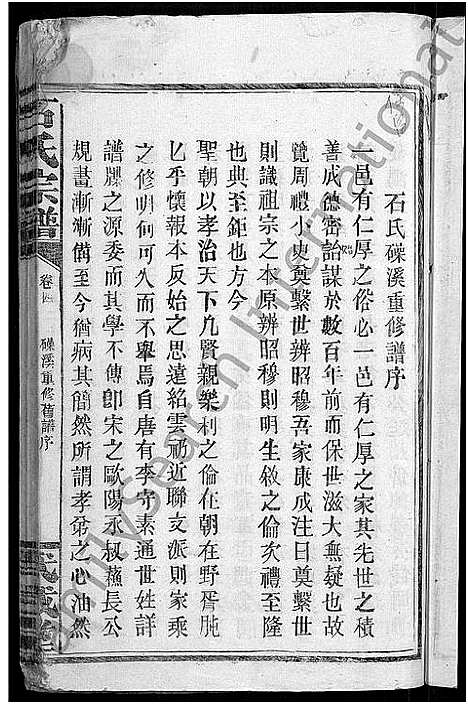 石氏磲溪重修譜序
一邑有仁厚之俗必一邑有仁厚之家其先世之積
善成德密詒謀於數百年前而保世滋大無疑也故
覽周禮小史奠繫世辨昭穆吾家康成注曰奠繫世
則識祖宗之本原辨昭穆則明生敘之倫次禮至隆
也典至鉅也方今
聖朝以孝治天下凡賢親樂利之倫在朝在野胥肫
乙乎懷報本反始之思遠紹雲礽近聯支派則家乘
之修明何可久而不舉焉自唐有李守素通世姓詳
譜牒之源委而其學不傳卽宋之歐陽永叔蘇長公
規畫漸漸備至今猶病其簡然所謂孝弟之心油然
石氏宗譜
卷四
磲溪重修舊譜序
FamilySearch International